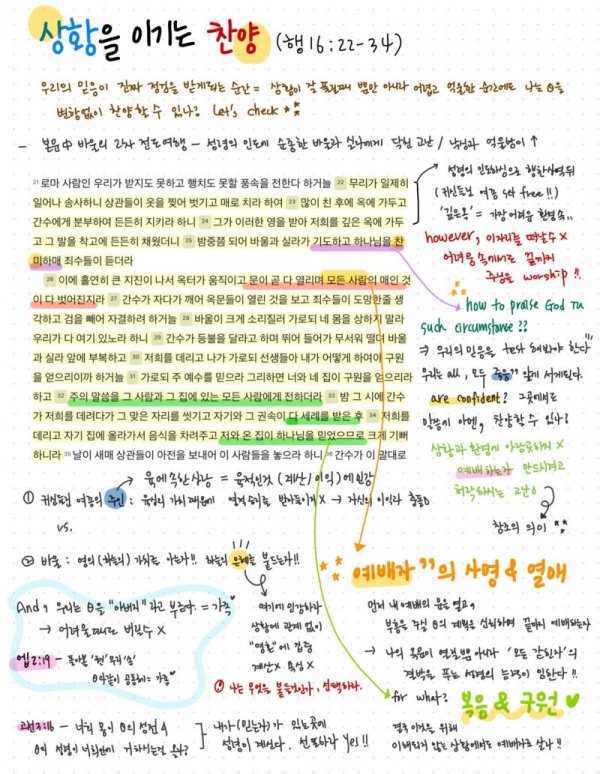 상황을 이기는 찬양 (행16:22-34)
우리의 믿음이 진짜 점검을 받게되는 순간 = 상황이 잘 풀릴때 뿐만 아니라 어렵고 억울한 순간에도 나는
변함없이 찬양할 수 있나? Let's check
- 본문中 바울의 2차 전도여행 - 성령의 인도에 순종한 바울과 실라에게 닥친 고난 / 낙심과 억울함이 ↑
21 로마 사람인 우리가 받지도 못하고 행치도 못할 풍속을 전한다 하거늘 22 무리가 일제히
일어나 송사하니 상관들이 옷을 찢어 벗기고 매로 치라 하여 23 많이 친 후에 옥에 가두고
간수에게 분부하여 든든히 지키라 하니 24 그가 이러한 영을 받아 저희를 깊은 옥에 가두
고 그 발을 착고에 든든히 채웠더니 25 밤중쯤 되어 바울과 실라가 기도하고 하나님을 찬
미하매 죄수들이 듣더라
26 이에 홀연히 큰 지진이 나서 옥터가 움직이고 문이 곧 다 열리며 모든 사람의 매인 것
이 다 벗어진지라 27 간수가 자다가 깨어 옥문들이 열린 것을 보고 죄수들이 도망한줄 생
각하고 검을 빼어 자결하려 하거늘 28 바울이 크게 소리질러 가로되 네 몸을 상하지 말라
우리가 다 여기 있노라 하니 29 간수가 등불을 달라고 하며 뛰어 들어가 무서워 떨며 바울
과 실라 앞에 부복하고 30 저희를 데리고 나가 가로되 선생들아 내가 어떻게 하여야 구원
을 얻으리이까 하거늘 31 가로되 주 예수를 믿으라 그리하면 너와 네 집이 구원을 얻으리라
하고 32 주의 말씀을 그 사람과 그 집에 있는 모든 사람에게 전하더라 33 밤 그 시에 간수
가 저희를 데려다가 그 맞은 자리를 씻기고 자기와 그 권속이 다 세례를 받은 후 34 저희를
데리고 자기 집에 올라가서 음식을 차려주고 저와 온 집이 하나님을 믿었으므로 크게 기뻐
하니라 35 날이 새매 상관들이 아전을 보내어 이 사람들을 놓으라 하니 36 간수가 이 말대로
성령의 인도하심으로 행한사역뒤
(귀신들린 여종 set free!!)
'깊은옥' = 가장 어려운 환경속..
however, 이자리를 떠날수 X
어려움 속에서도 끝까지
주님을 worship!!
how to praise God in
such circumstance??
⇒ 우리의 믿음을 test 해봐야 한다
우리는 all, 모두 죽음 앞에 서게된다.
are confident? 그곳에서도
말씀이 아멘, 찬양할 수 있나?
상황과 환경에 아랑곳하지 X
예배하는자 만드시려고
허락하시는 고난
창조의 의미
육에 속한 사람 = 육적인것 (계산/이익)에 민감
① 귀신들린 여종의 주인 : 육일의 가치 때문에 영적 승리를 받아들이지 X → 자신의 이익과 충돌
vs.
② 바울 : 영의(하늘의) 가치를 아는자!! 하늘의 은혜를 붙드는자!!
여기에 민감하라
상황에 관계 없이
"영혼"에 집중
계산X 욕심X
! 나는 무엇을 붙들것인가, 선택하라.
And, 우리는 을 "아버지"라고 부른다. = 가족
→ 어려울때도 버릴수 X
엡2:19 -
고전3:16 - 너희 몸이 의 성전&
의 성령이 너희안에 거하시는것 을?
내가(믿는자)가 있는곳에
성령이 계신다. 선포하라 Yes!!
"예배자"의 사명 & 열애
먼저 내 예배의 문을 열고,
부흥을 주실 의 계획을 신뢰하며 끝까지 예배하는자
→ 나의 묶임이 열릴뿐 아니라 '모든 갇힌자'의
결박을 푸는 성령의 능력이 임한다!!
for what? 복음 & 구원
결국 이것을 위해
이해되지 않는 상황에서도 예배자로 살다!!